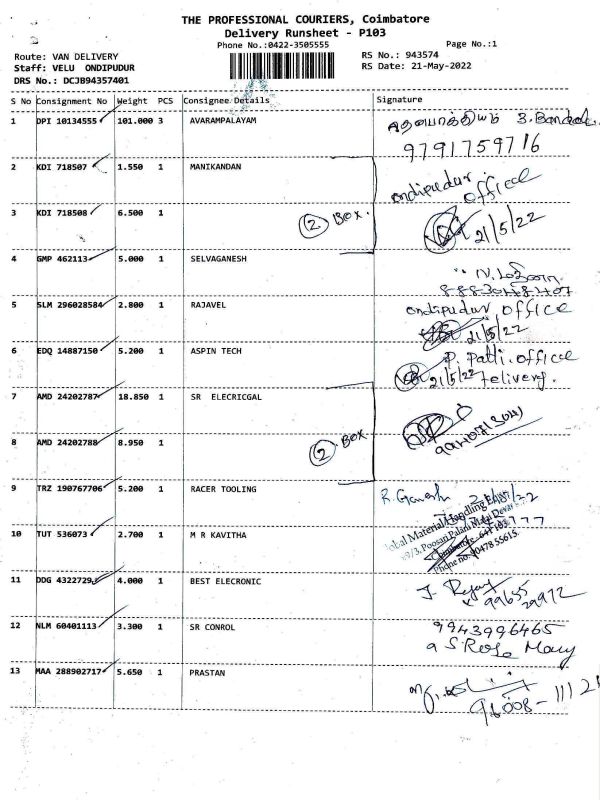 THE PROFESSIONAL COURIERS, Coimbatore
Delivery Runsheet - P103
Phone No.:0422-3505555
Page No.:1
Route: VAN DELIVERY
RS No.: 943574
Staff: VELU ONDIPUDUR
RS Date: 21-May-2022
DRS No.: DCJB94357401
S No Consignment No Weight PCS Consignee Details Signature
1 DPI 10134555 101.000 3 AVARAMPALAYAM
9791759716
2 KDI 718507 1.550 1 MANIKANDAN
ondipudur office
3 KDI 718508 6.500 1 2 BOX. 21/5/22
4 GMP 462113 5.000 1 SELVAGANESH
5 SLM 296028584 2.800 1 RAJAVEL ondipudur office
21/5/22
6 EDQ 14887150 5.200 1 ASPIN TECH P. Patti. office
21/5/22 Telivery.
7 AMD 24202787 18.850 1 SR ELECRICGAL
8 AMD 24202788 8.950 1 2 BOX
9 TRZ 190767706 5.200 1 RACER TOOLING R. Ganesh
10 TUT 536073 2.700 1 M R KAVITHA
Global Material Handling
Coimbatore
Phone no. 90478 55615
11 DDG 4322729 4.000 1 BEST ELECRONIC
99655
29972
12 NLM 60401113 3.300 1 SR CONROL 9943996465
S Rose Mary
13 MAA 288902717 5.650 1 PRASTAN